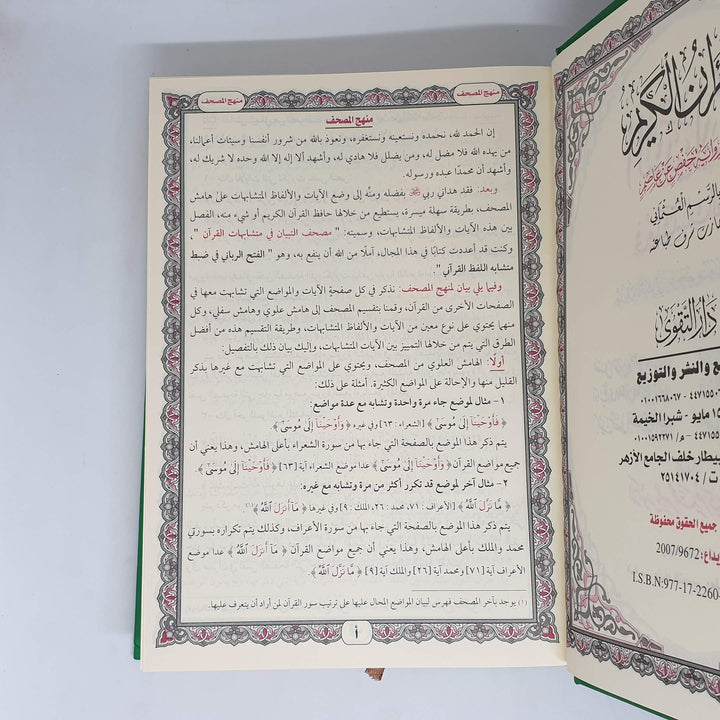 منهج المصحف
منهج المصحف
منهج المصحف
إن الحمد لله، نحمده ونستعينه ونستغفره، ونعوذ بالله من شرور أنفسنا وسيئات أعمالنا،
من يهده الله فلا مضل له، ومن يضلل فلا هادي له، وأشهد ألا إله إلا الله وحده لا شريك له،
وأشهد أن محمدًا عبده ورسوله.
وبعد: فقد هداني ربي ﷻ بفضله ومنِّه إلى وضع الآيات والألفاظ المتشابهات على هامش
المصحف، بطريقة سهلة ميسرة، يستطيع من خلالها حافظ القرآن الكريم أو شيء منه، الفصل
بين هذه الآيات والألفاظ المتشابهات، وسميته: " مصحف التبيان في متشابهات القرآن "،
وكنت قد أعددت كتابًا في هذا المجال، آملًا من الله أن ينفع به، وهو " الفتح الرباني في ضبط
متشابه اللفظ القرآني ".
وفيما يلي بيان لمنهج المصحف: نذكر في كل صفحة الآيات والمواضع التي تشابهت معها في
الصفحات الأخرى من القرآن، وقمنا بتقسيم المصحف إلى هامش علوي وهامش سفلي، وكل
منهما يحتوي على نوع معين من الآيات والألفاظ المتشابهات، وطريقة التقسيم هذه من أفضل
الطرق التي يتم من خلالها التمييز بين الآيات المتشابهات، وإليك بيان ذلك بالتفصيل:
أولًا: الهامش العلوي من المصحف، ويحتوي على المواضع التي تشابهت مع غيرها بذكر
القليل منها والإحالة على المواضع الكثيرة. أمثلة على ذلك:
١ - مثال لموضع جاء مرة واحدة وتشابه مع عدة مواضع:
﴿ فَأَوْحَيْنَآ إِلَىٰ مُوسَىٰٓ ﴾ [الشعراء: ٦٣] وفي غيره ﴿ وَأَوْحَيْنَآ إِلَىٰ مُوسَىٰٓ ﴾.
يتم ذكر هذا الموضع بالصفحة التي جاء بها من سورة الشعراء بأعلى الهامش، وهذا يعني أن
جميع مواضع القرآن ﴿ وَأَوْحَيْنَآ إِلَىٰ مُوسَىٰٓ ﴾ عدا موضع الشعراء آية [٦٣] ﴿ فَأَوْحَيْنَآ إِلَىٰ مُوسَىٰٓ ﴾.
٢ - مثال آخر لموضع قد تكرر أكثر من مرة وتشابه مع غيره:
﴿ مَّا نَزَّلَ ٱللَّهُ ﴾ [الأعراف: ٧١، محمد: ٢٦، الملك: ٩] وفي غيرها ﴿ مَآ أَنزَلَ ٱللَّهُ ﴾.(١)
يتم ذكر هذا الموضع بالصفحة التي جاء بها من سورة الأعراف، وكذلك يتم تكراره بسورتي
محمد والملك بأعلى الهامش، وهذا يعني أن جميع مواضع القرآن ﴿ مَآ أَنزَلَ ٱللَّهُ ﴾ عدا موضع
الأعراف آية [٧١] ومحمد آية [٢٦] والملك آية [٩] ﴿ مَّا نَزَّلَ ٱللَّهُ ﴾.
(١) يوجد بآخر المصحف فهرس لبيان المواضع المحال عليها على ترتيب سور القرآن لمن أراد أن يتعرف عليها.
أ
الكريم
دار التقوى
والنشر والتوزيع
١٥ مايو - شبرا الخيمة
البيطار خلف الجامع الأزهر
ت / ٢٥١٤١٧٠٤
جميع الحقوق محفوظة
2007/9672
I.S.B.N:977-17-2260-